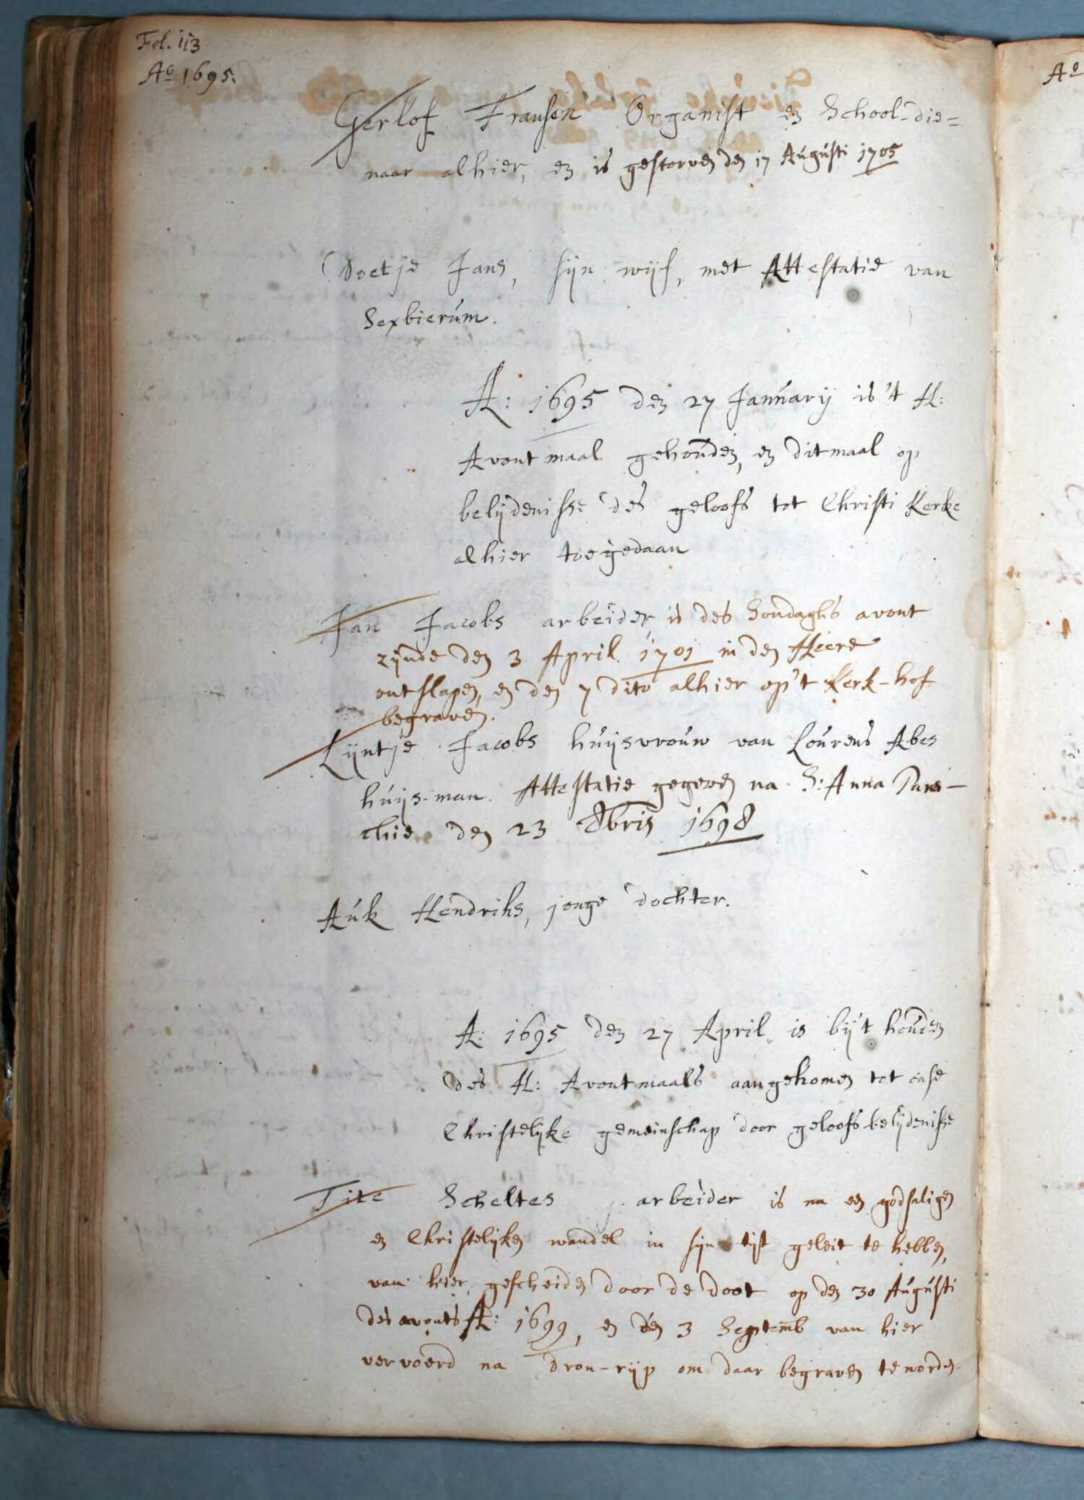 Fol. 113
Aº 1695.
Gerlof Fransen Organist en School-die=
naar alhier, en is gestorven den 17 Augusti 1705
Doetje Jans, sijn wijf, met Attestatie van
Sexbierum.
A: 1695 den 27 January is 't H:
Avontmaal gehouden, en ditmaal op
belijdenisse des geloofs tot Christi Kerke
alhier toegedaan
Jan Jacobs arbeider is des Sondaghs avont
zijnde den 3 April 1701 in den Heere
ontslapen, en den 7 dito alhier op 't Kerk-hof
begraven.
Lijntje Jacobs huijsvrouw van Lourens Abes
huijs-man. Attestatie gegeven na S: Anna Paro-
chie den 23 8bris 1698
Auk Hendriks, jonge dochter.
A: 1695 den 27 April is bij 't houden
des H: Avontmaals aangekomen tot onse
Christelijke gemeinschap door geloofs-belijdenisse
Tite Scheltes arbeider is na een godsaligen
en Christelijken wandel in sijn tijt geleit te hebben,
van hier gescheiden door de doot op den 30 Augusti
des avonts A: 1699, en den 3 Septemb van hier
vervoerd na dron-rijp om daar begraven te worden.
Aº